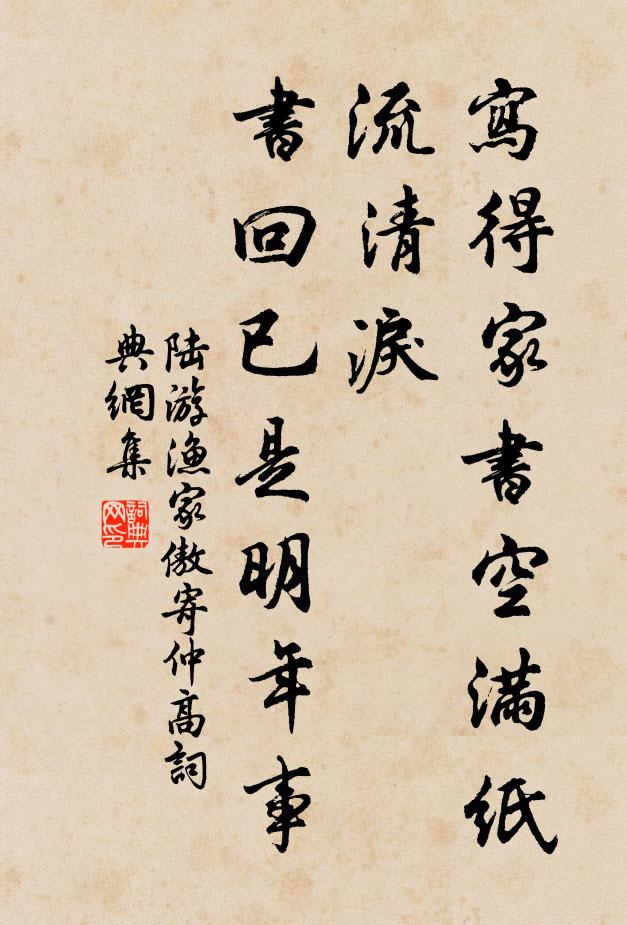 寫得家書空滿紙
流清淚
書回已是明年事
陆游漁家傲寄仲高詞
典網集
詞典
网印